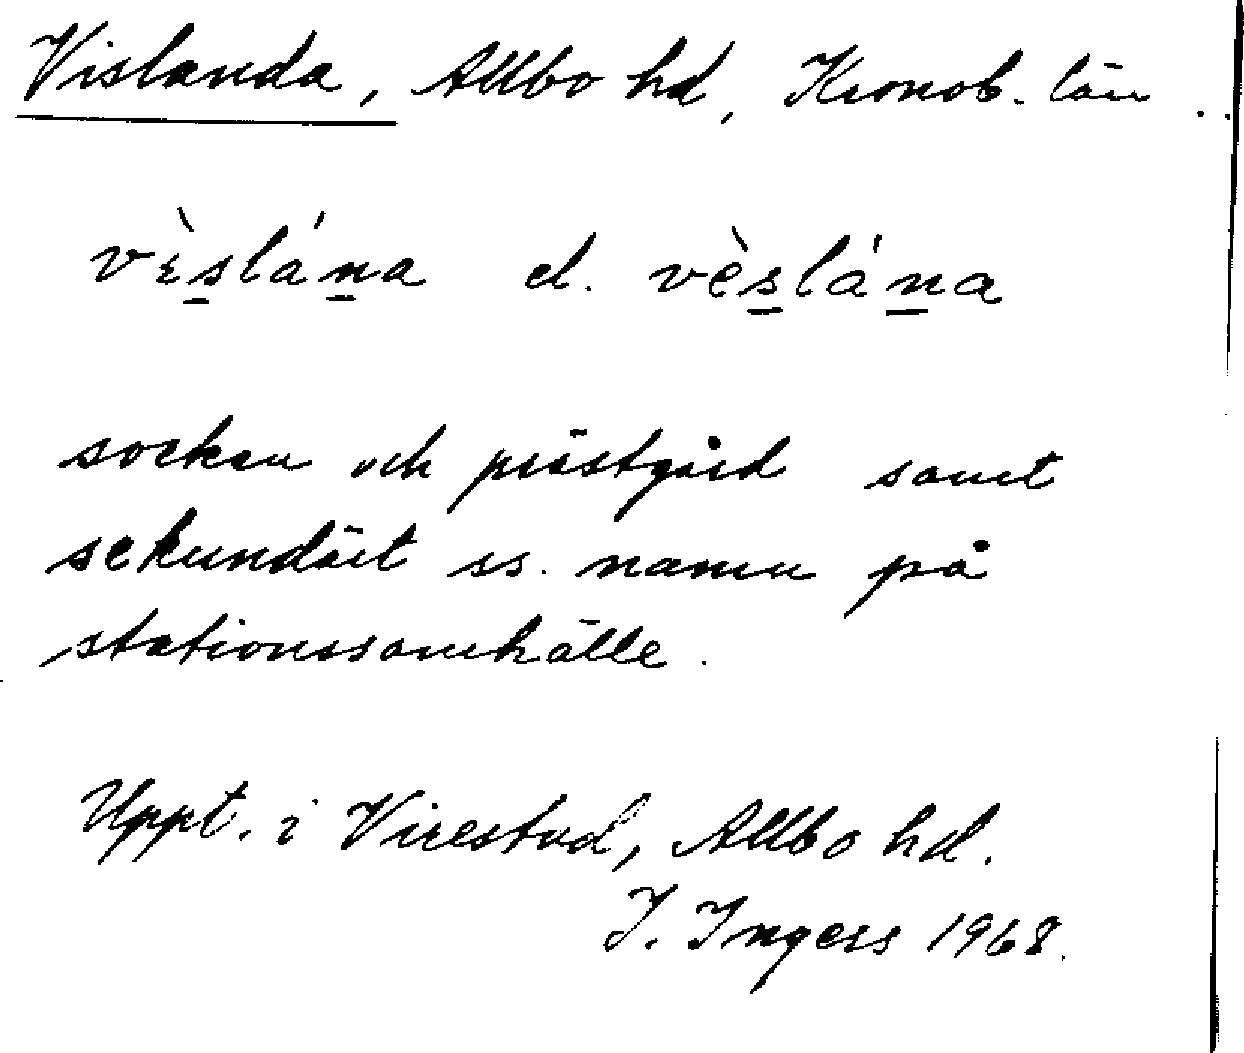 Vislanda, Allbo hd, Kronob. län.
vɛ̀s̲lán̲a el. vès̲lán̲a
socken och prästgård samt
sekundärt ss. namn på
stationssamhälle.
Uppt. i Virestad, Allbo hd.
I. Ingers 1968.